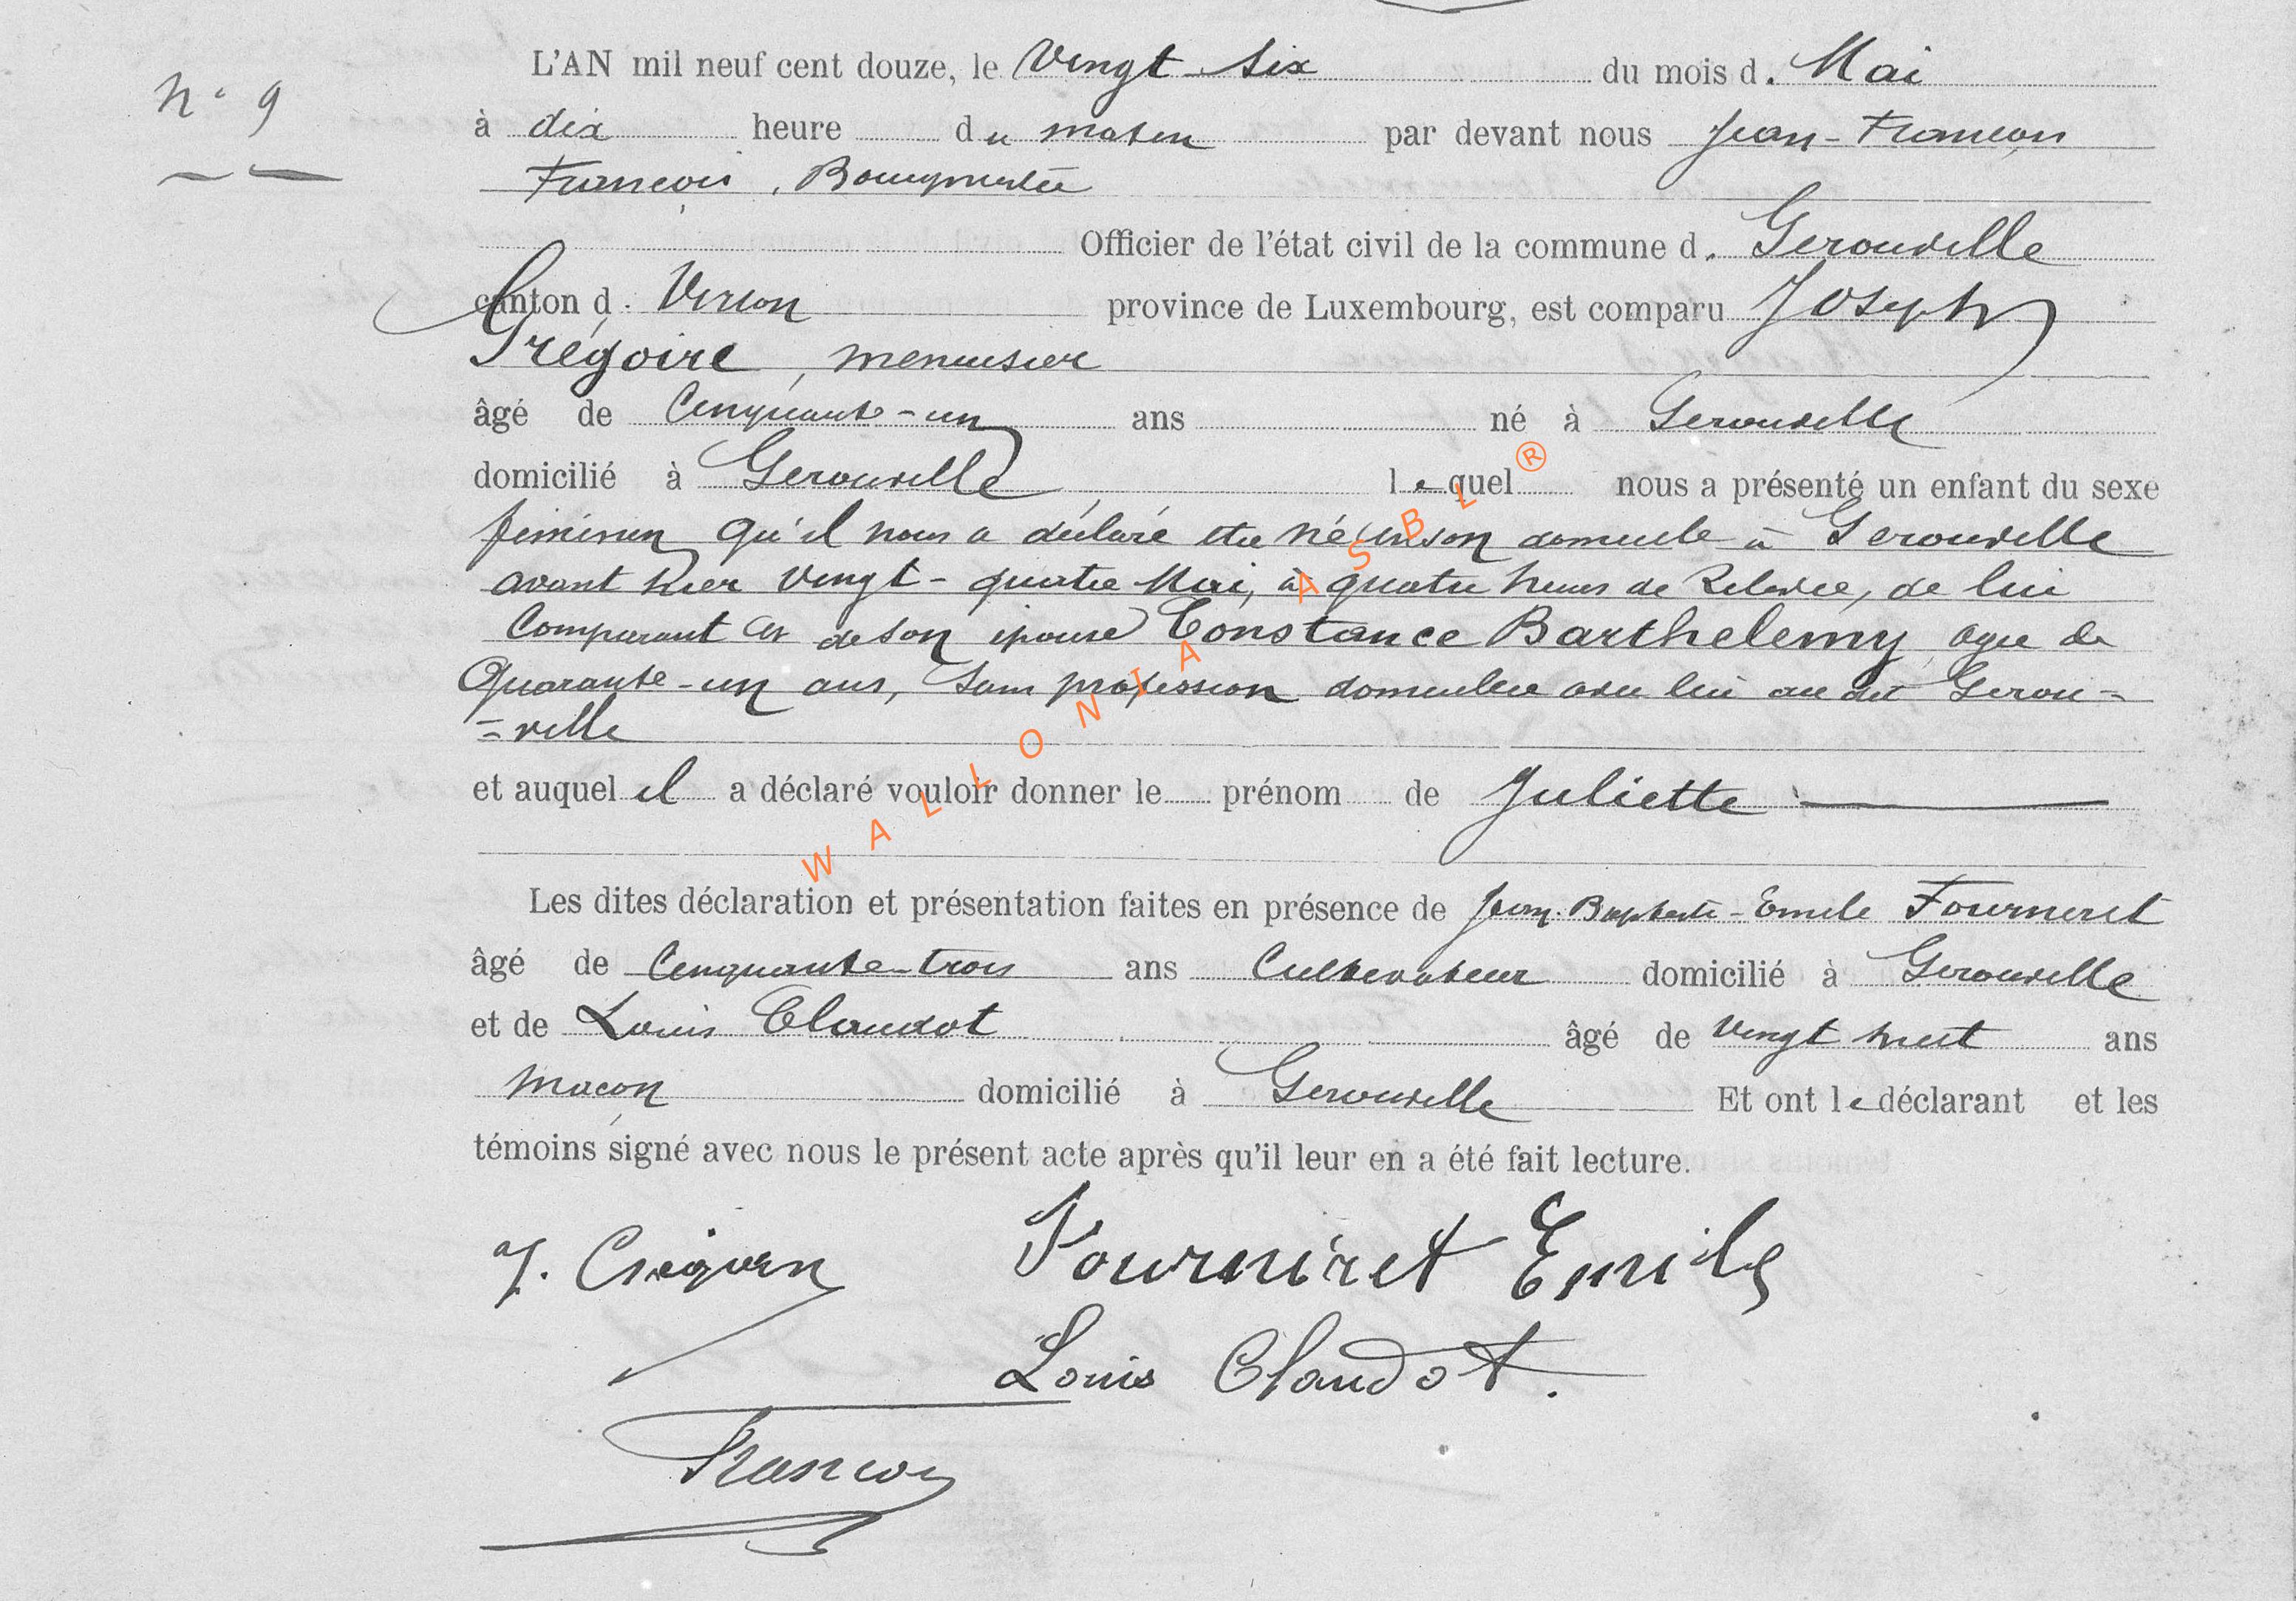 N° 9
L'AN mil neuf cent douze, le Vingt six du mois d. Mai
à dix heure du matin par devant nous Jean-François
François, Bourgmestre
Officier de l'état civil de la commune d. Gerouville
canton d. Virton province de Luxembourg, est comparu Joseph
Grégoire, menuisier
âgé de Cinquante-un ans né à Gerouville
domicilié à Gerouville lequel nous a présenté un enfant du sexe
féminin qu'il nous a déclaré être né en son domicile à Gerouville
avant hier Vingt-quatre Mai, à quatre heures de Relevée, de lui
Comparant et de son épouse Constance Barthelemy agée de
Quarante-un ans, Sans profession domiciliée avec lui au dit Gerou=
=ville
et auquel il a déclaré vouloir donner le prénom de Juliette
Les dites déclaration et présentation faites en présence de Jean-Baptiste-Emile Fourneret
âgé de Cinquante-trois ans Cultivateur domicilié à Gerouville
et de Louis Claudot âgé de Vingt huit ans
Maçon domicilié à Gerouville Et ont le déclarant et les
témoins signé avec nous le présent acte après qu'il leur en a été fait lecture.
J. Fourniret Emile
Louis Claudot.
François
WALLONIA ASBL ®